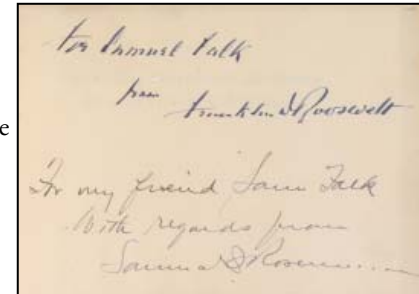 for Samuel Falk
from
Franklin D Roosevelt
e
For my friend Sam Falk
With regards from
Samuel I Rosenman